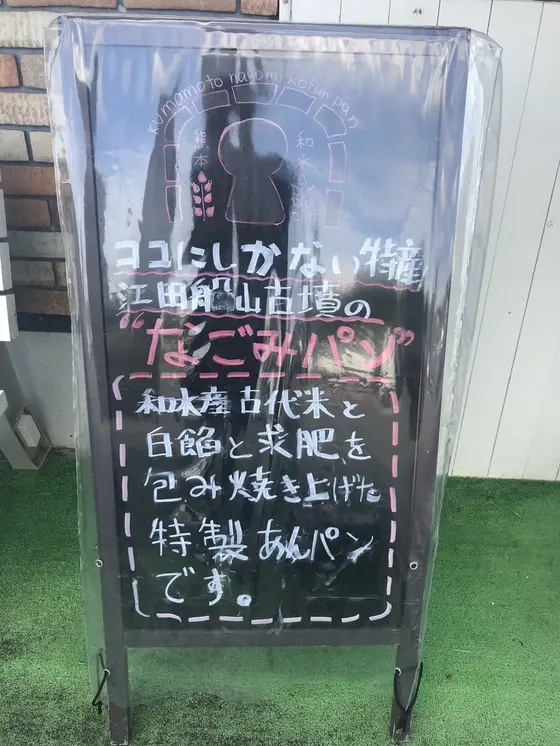 kumamoto nagomi kofun pan
熊本
和水
ココにしかない特産
江田船山古墳の
“なごみパン”
和水産古代米と
白餡と求肥を
包み焼き上げた
特製あんパン
です。